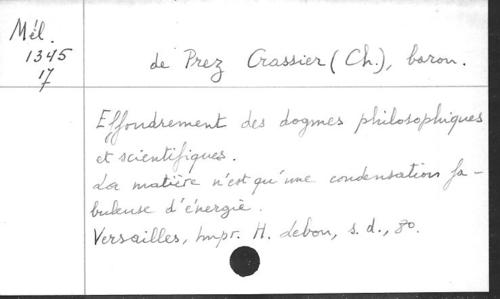 Mél.
1345
17
de Prez Crassier (Ch.), baron.
Effondrement des dogmes philosophiques
et scientifiques.
La matière n'est qu'une condensation fa-
buleuse d'énergie.
Versailles, Impr. H. Lebon, s. d., 8o.